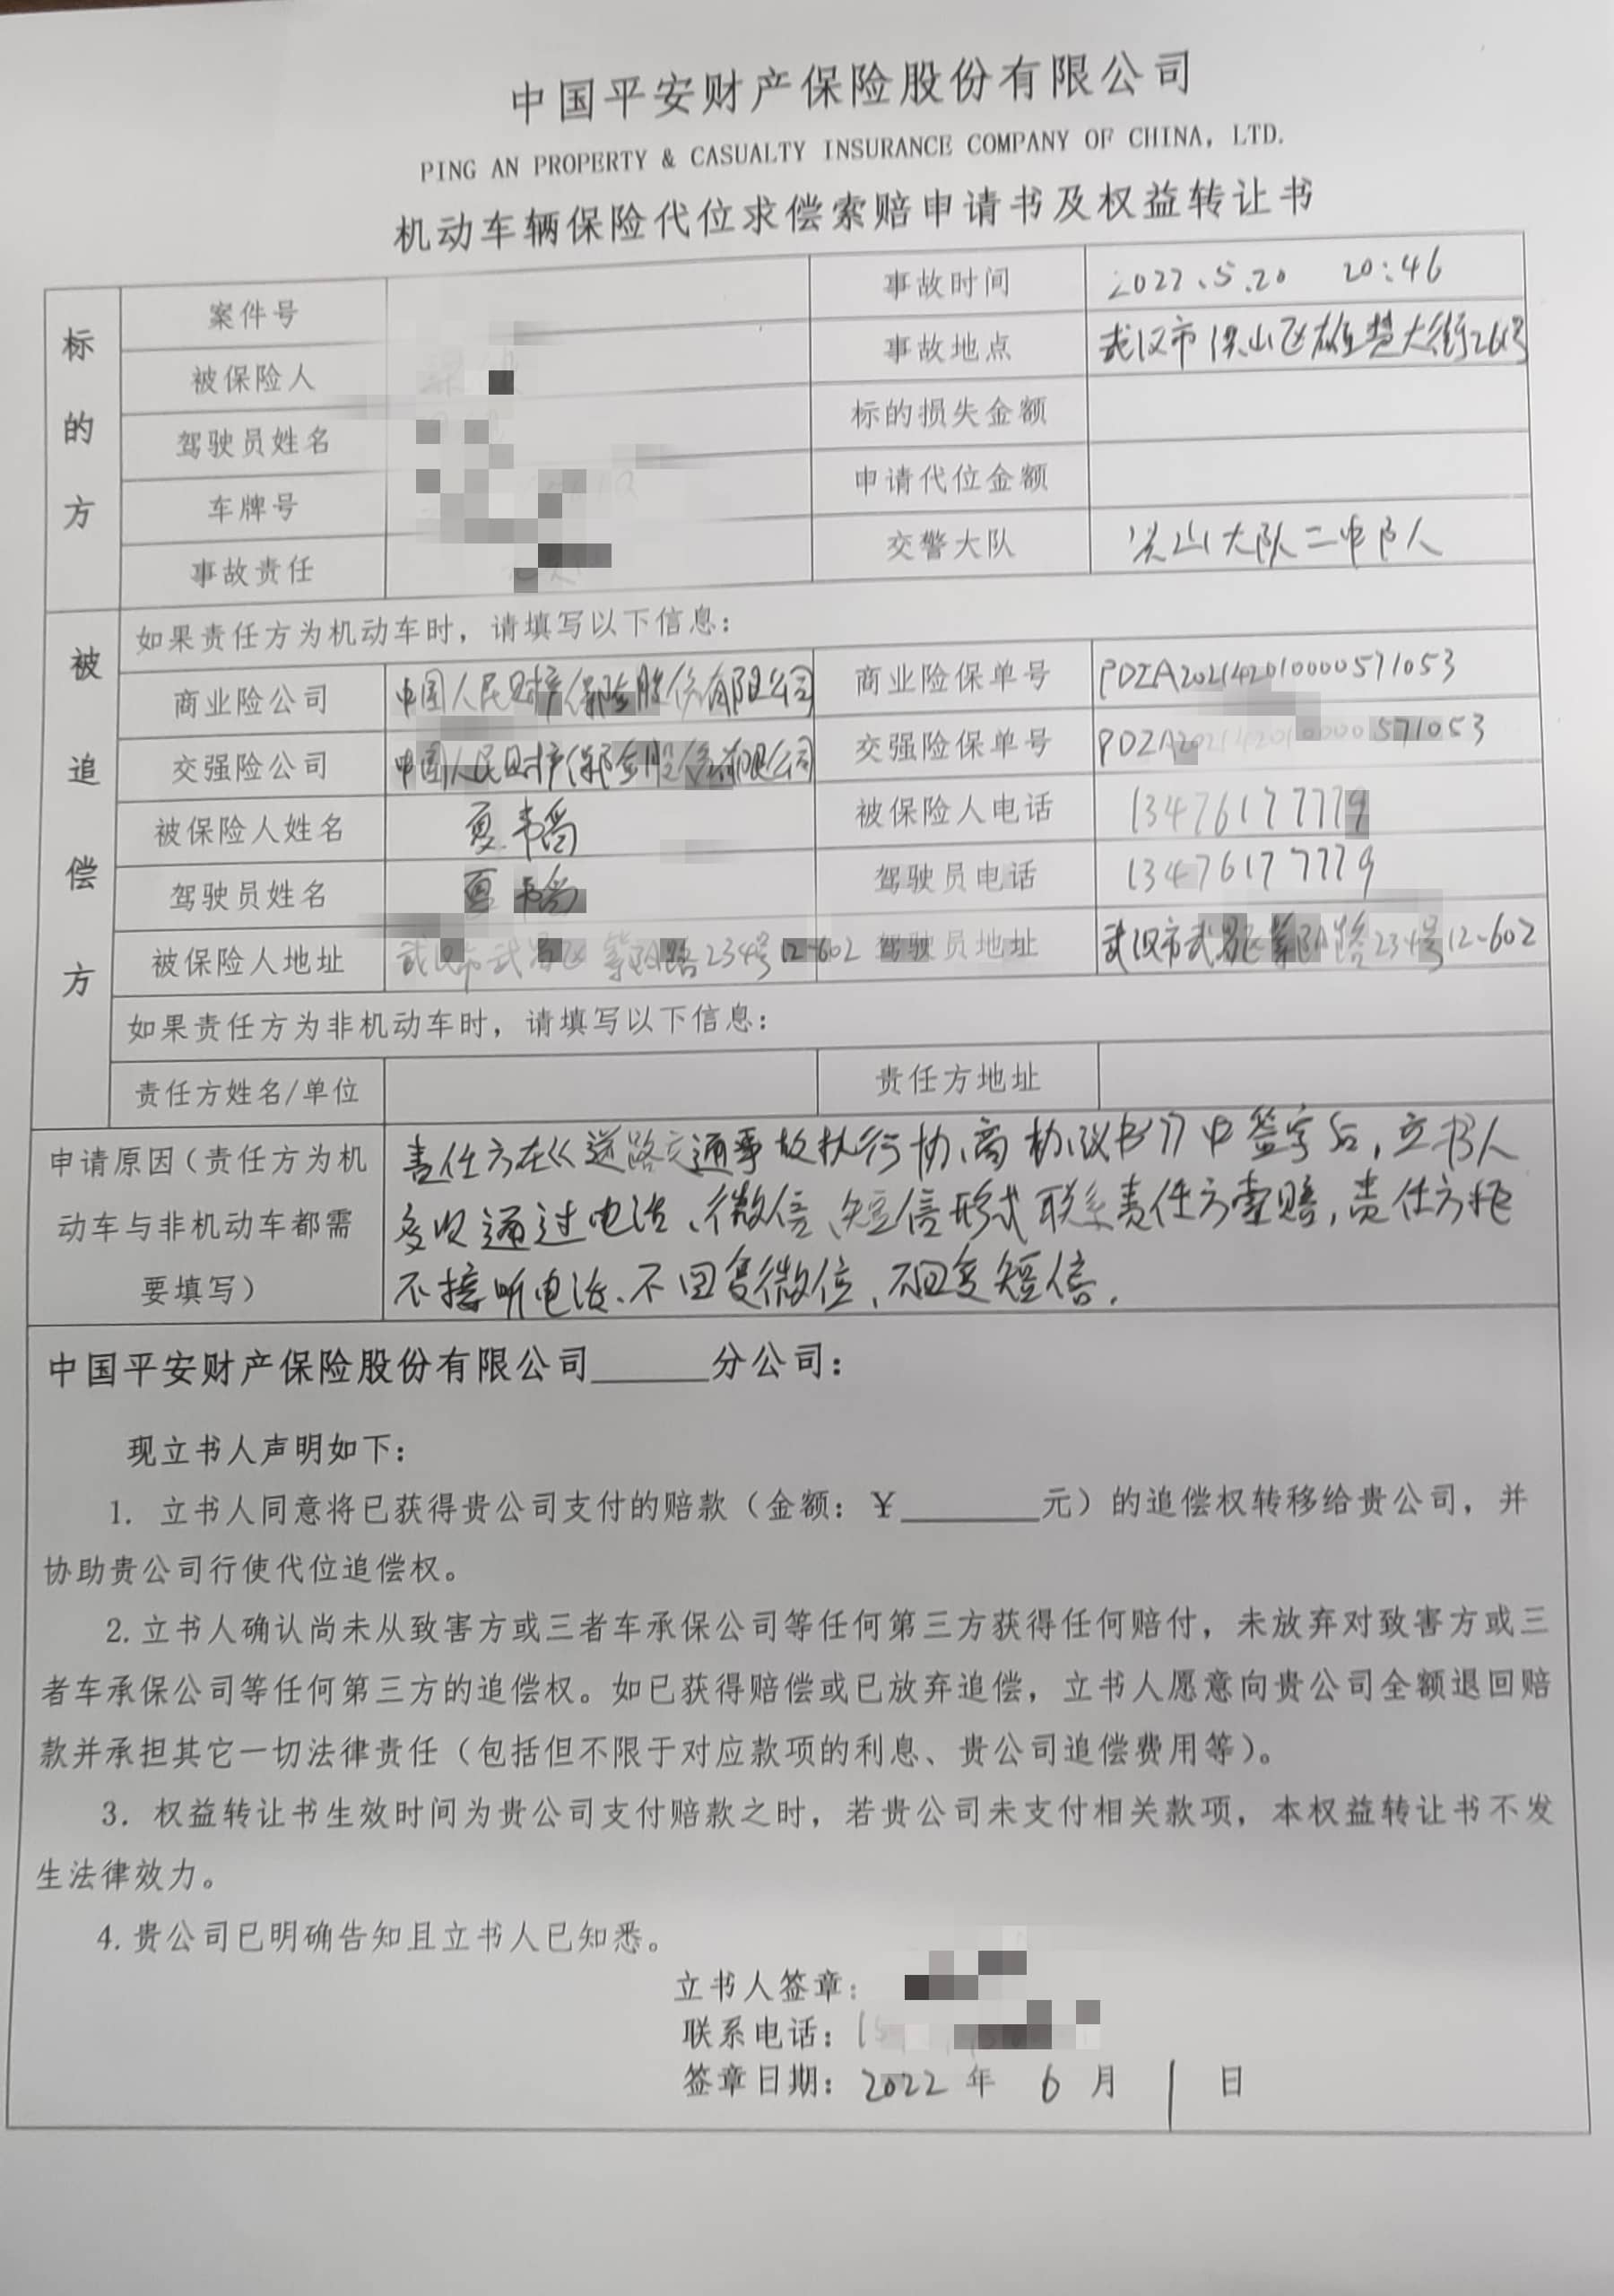 中国平安财产保险股份有限公司
PING AN PROPERTY & CASUALTY INSURANCE COMPANY OF CHINA, LTD.
机动车辆保险代位求偿索赔申请书及权益转让书
标的方
案件号 事故时间 2022.5.20 20:46
被保险人 事故地点 武汉市洪山区雄楚大街268号
驾驶员姓名 标的损失金额
车牌号 申请代位金额
事故责任 交警大队 洪山大队二中队
被追偿方
如果责任方为机动车时，请填写以下信息：
商业险公司 中国人民财产保险股份有限公司 商业险保单号 PDZA202142010000571053
交强险公司 中国人民财产保险股份有限公司 交强险保单号 PDZA202142010000571053
被保险人姓名 夏 被保险人电话 13476177779
驾驶员姓名 夏 驾驶员电话 13476177779
被保险人地址 武汉市武昌区 路234号12-602 驾驶员地址 武汉市武昌区 路234号12-602
如果责任方为非机动车时，请填写以下信息：
责任方姓名/单位 责任方地址
申请原因（责任方为机
动车与非机动车都需
要填写）
责任方在《道路交通事故执行协商协议书》中签字后，立书人
多次通过电话、微信、短信形式联系责任方索赔，责任方拒
不接听电话、不回复微信、不回复短信.
中国平安财产保险股份有限公司______分公司：
现立书人声明如下：
1. 立书人同意将已获得贵公司支付的赔款（金额：￥_______元）的追偿权转移给贵公司，并
协助贵公司行使代位追偿权。
2.立书人确认尚未从致害方或三者车承保公司等任何第三方获得任何赔付，未放弃对致害方或三
者车承保公司等任何第三方的追偿权。如已获得赔偿或已放弃追偿，立书人愿意向贵公司全额退回赔
款并承担其它一切法律责任（包括但不限于对应款项的利息、贵公司追偿费用等）。
3. 权益转让书生效时间为贵公司支付赔款之时，若贵公司未支付相关款项，本权益转让书不发
生法律效力。
4.贵公司已明确告知且立书人已知悉。
立书人签章：
联系电话：
签章日期：2022 年 6 月 1 日